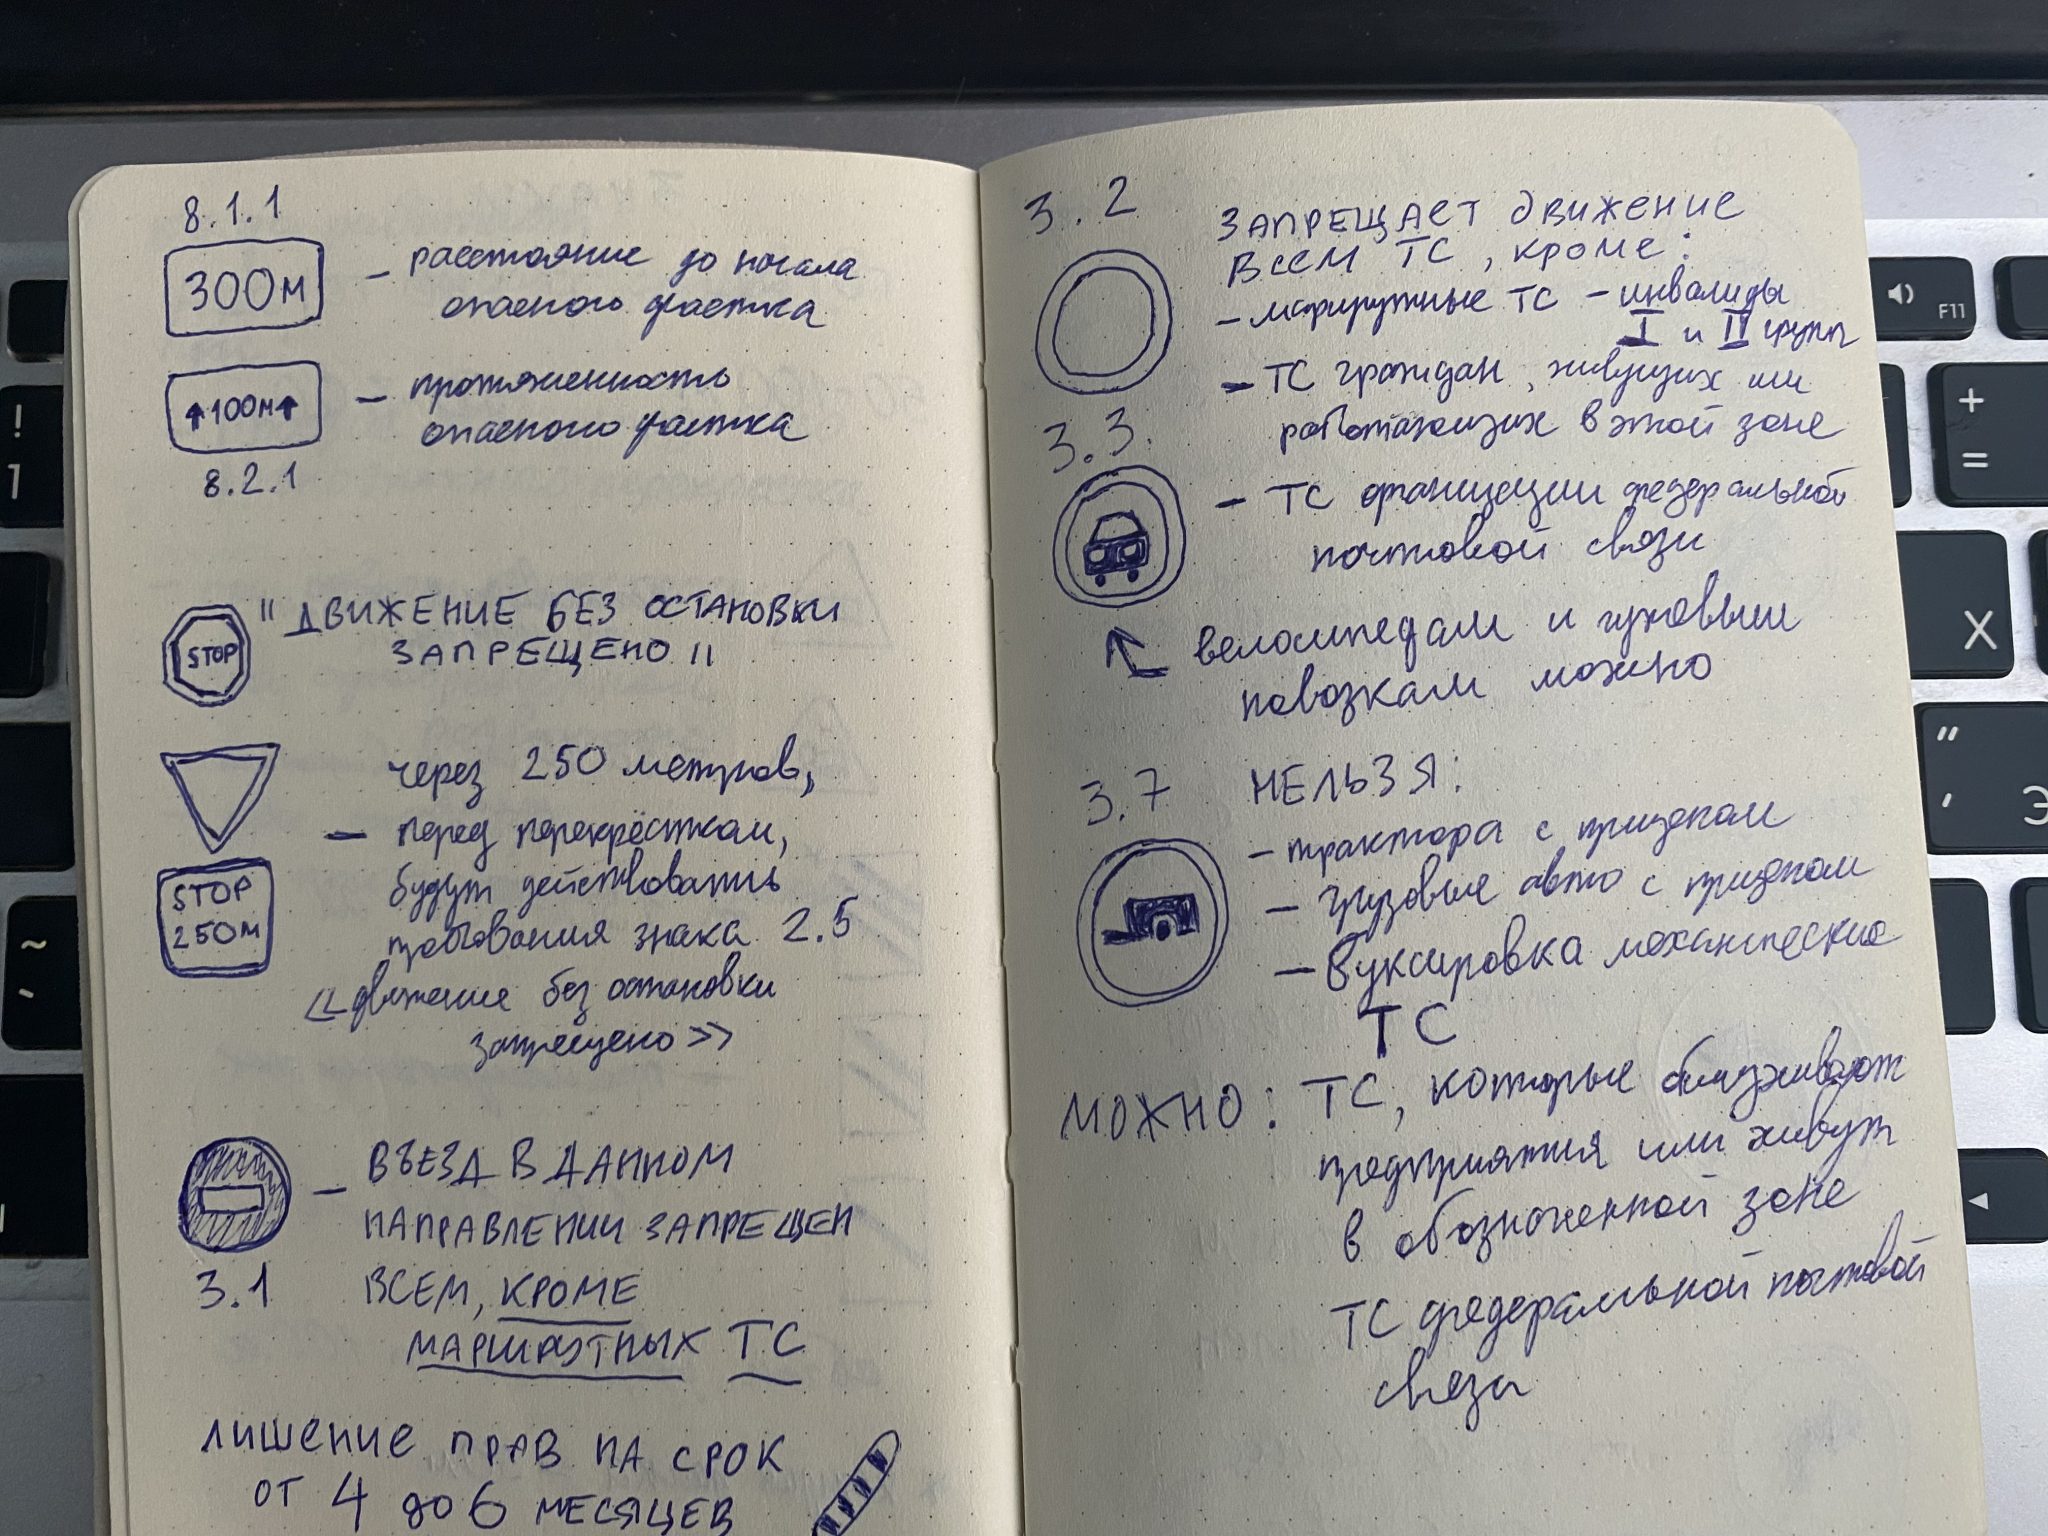 8.1.1
300м
– расстояние до начала
опасного участка
↑100м↑
– протяженность
опасного участка
8.2.1
STOP
"ДВИЖЕНИЕ БЕЗ ОСТАНОВКИ
ЗАПРЕЩЕНО"
через 250 метров,
– перед перекрёстком,
STOP
250м
будут действовать
требования знака 2.5
«движение без остановки
запрещено»
– ВЪЕЗД В ДАННОМ
НАПРАВЛЕНИИ ЗАПРЕЩЕН
3.1
ВСЕМ, КРОМЕ
МАРШРУТНЫХ ТС
ЛИШЕНИЕ ПРАВ НА СРОК
ОТ 4 до 6 МЕСЯЦЕВ
3.2
ЗАПРЕЩАЕТ ДВИЖЕНИЕ
ВСЕМ ТС, КРОМЕ:
– маршрутные ТС – инвалиды
I и II групп
– ТС граждан, живущих или
работающих в этой зоне
3.3.
– ТС организации федеральной
почтовой связи
велосипедам и гужевым
повозкам можно
3.7
НЕЛЬЗЯ:
– трактора с прицепом
– грузовые авто с прицепом
– Буксировка механические
ТС
МОЖНО: ТС, которые обслуживают
предприятия или живут
в обозначенной зоне
ТС федеральной почтовой
связи
F11
!
1
+
=
X
"
'
Э
~